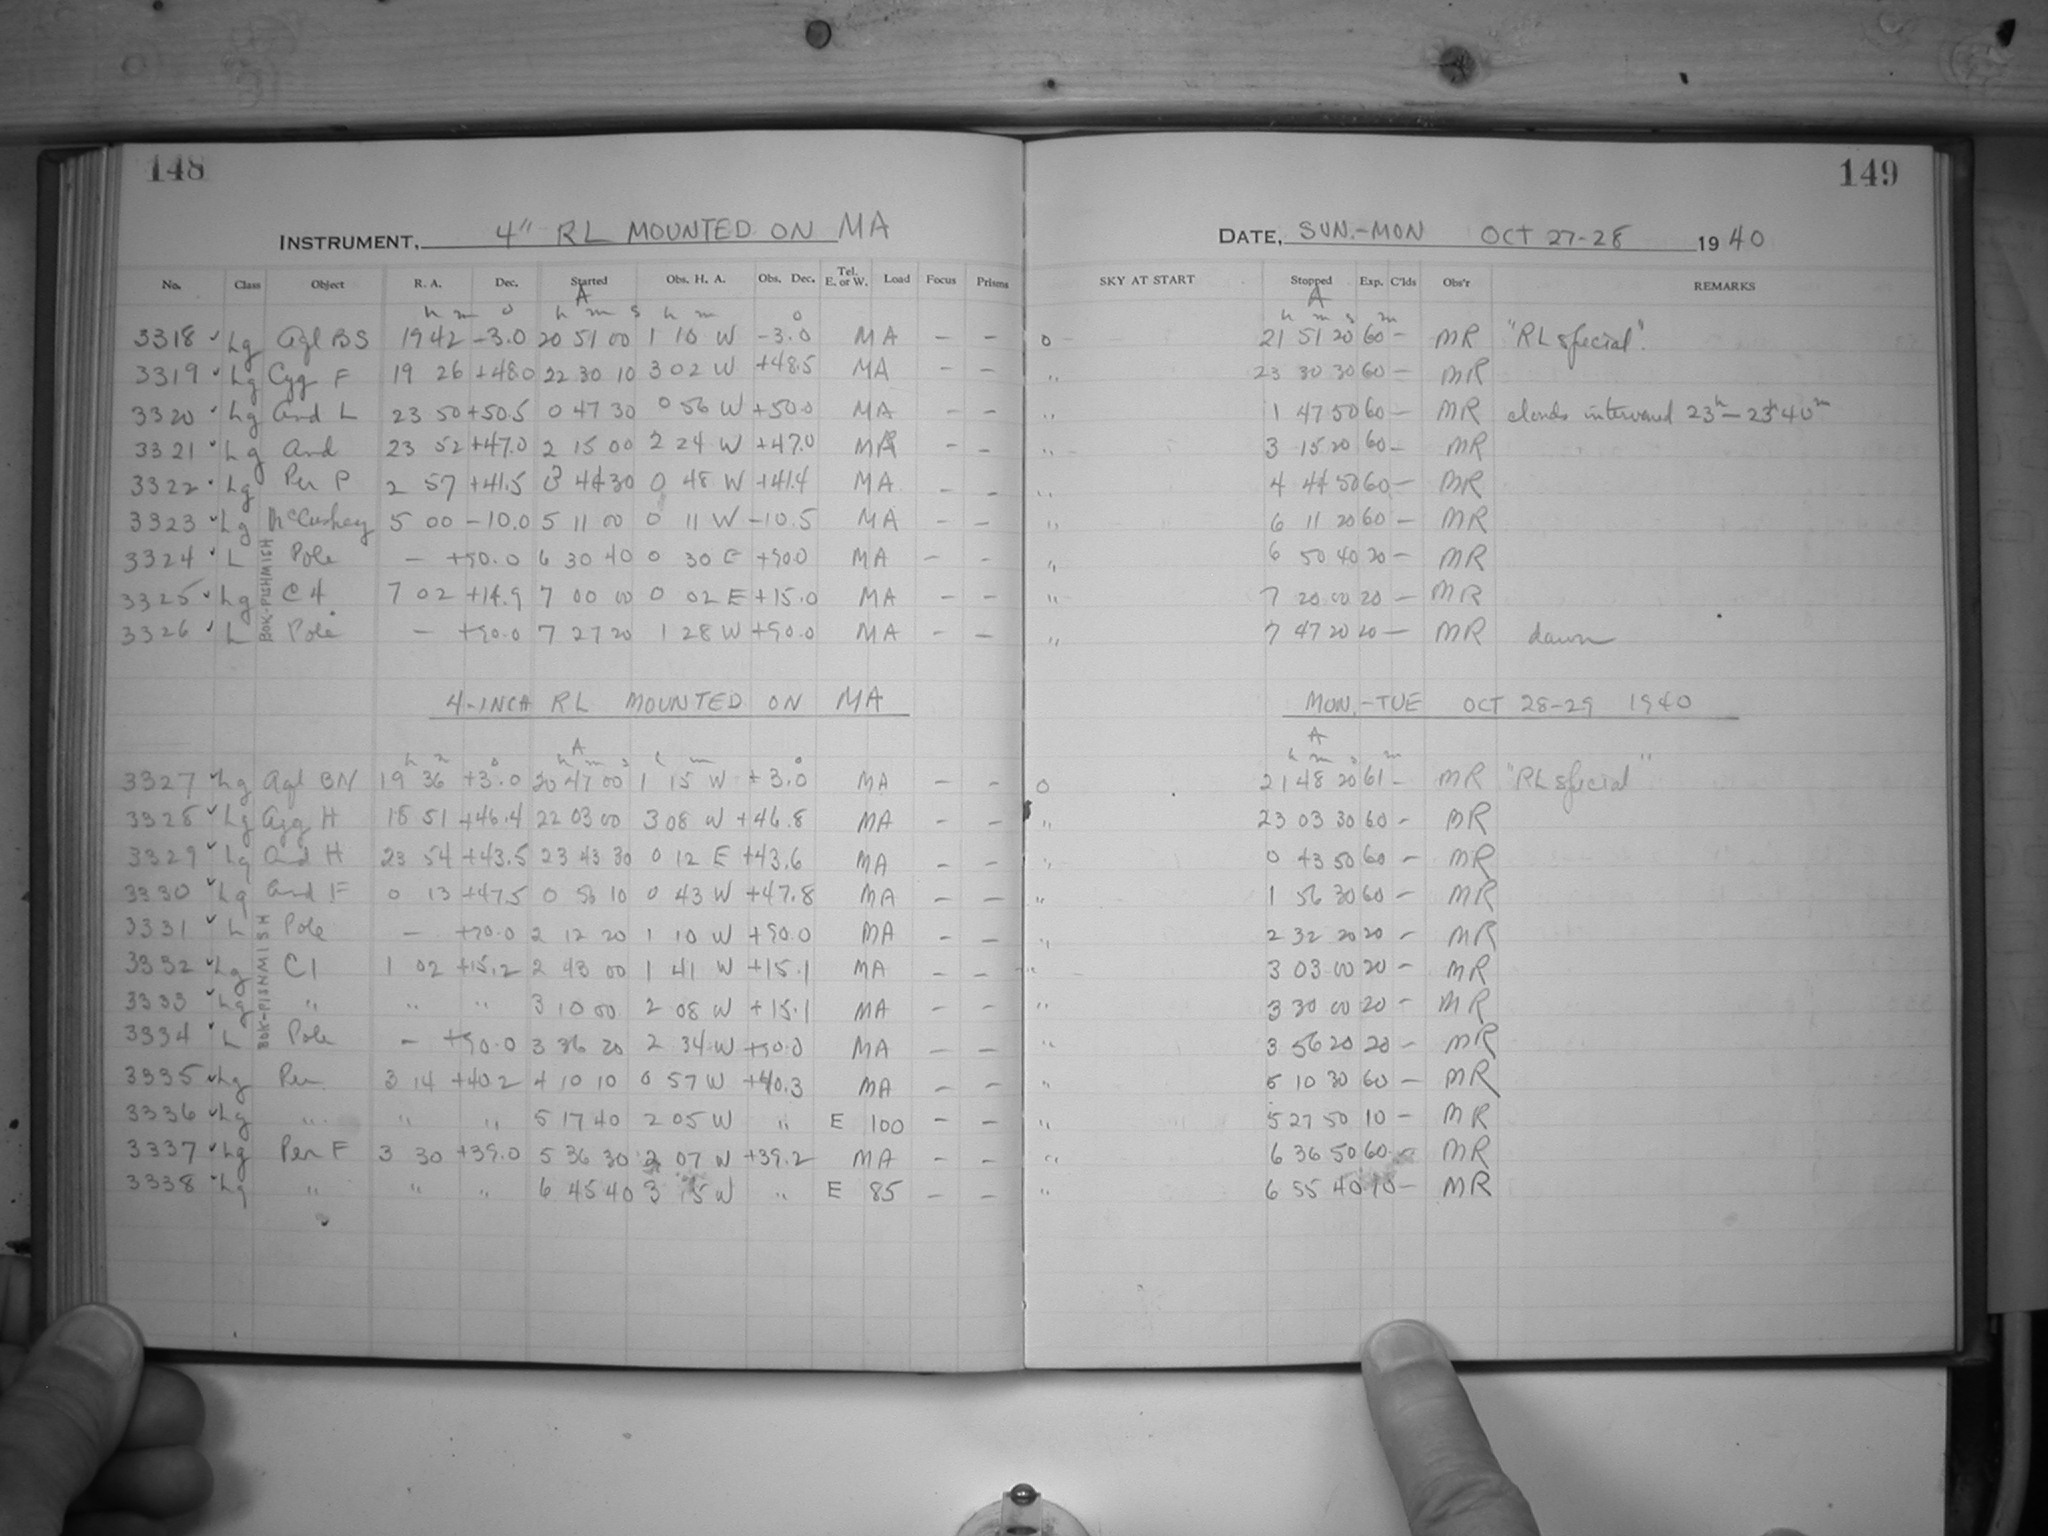 148
INSTRUMENT, 4" RL MOUNTED ON MA
No. Class Object R. A. Dec. Started Obs. H. A. Obs. Dec. Tel. E. or W. Load Focus Prisms
A
h m ° h m s h m °
3318 ✓ Lg Aql BS 19 42 -3.0 20 51 00 1 10 W -3.0 MA - -
3319 ✓ Lg Cyg F 19 26 +48.0 22 30 10 3 02 W +48.5 MA - -
3320 ✓ Lg And L 23 50 +50.5 0 47 30 0 56 W +50.0 MA - -
3321 ✓ Lg And 23 52 +47.0 2 15 00 2 24 W +47.0 MA - -
3322 ✓ Lg Per P 2 57 +41.5 3 44 30 0 48 W +41.4 MA - -
3323 ✓ Lg McCuskey 5 00 -10.0 5 11 00 0 11 W -10.5 MA - -
3324 ✓ L Pole - +90.0 6 30 40 0 30 E +90.0 MA - -
3325 ✓ Lg C4 7 02 +14.9 7 00 00 0 02 E +15.0 MA - -
3326 ✓ L Pole - +90.0 7 27 20 1 28 W +90.0 MA - -
4-INCH RL MOUNTED ON MA
A
h m ° h m s h m °
3327 ✓ Lg Aql BN 19 36 +3.0 20 47 00 1 15 W +3.0 MA - -
3328 ✓ Lg Cyg H 18 51 +46.4 22 03 00 3 08 W +46.8 MA - -
3329 ✓ Lg And H 23 54 +43.5 23 43 30 0 12 E +43.6 MA - -
3330 ✓ Lg And F 0 13 +47.5 0 56 10 0 43 W +47.8 MA - -
3331 ✓ L Pole - +90.0 2 12 20 1 10 W +90.0 MA - -
3332 ✓ Lg C1 1 02 +15.2 2 43 00 1 41 W +15.1 MA - -
3333 ✓ Lg " " " 3 10 00 2 08 W +15.1 MA - -
3334 ✓ L Pole - +90.0 3 36 20 2 34 W +90.0 MA - -
3335 ✓ Lg Per 3 14 +40.2 4 10 10 0 57 W +40.3 MA - -
3336 ✓ Lg " " " 5 17 40 2 05 W " E 100 - -
3337 ✓ Lg Per F 3 30 +39.0 5 36 30 2 07 W +39.2 MA - -
3338 ✓ Lg " " " 6 45 40 3 15 W " E 85 - -
149
DATE, SUN.-MON OCT 27-28 1940
SKY AT START Stopped Exp. C'lds Obs'r REMARKS
A
h m s m
0 21 51 20 60 - MR "RL special"
" 23 30 30 60 - MR
" 1 47 50 60 - MR clouds intervened 23h-23h40m
" 3 15 20 60 - MR
" 4 44 50 60 - MR
" 6 11 20 60 - MR
" 6 50 40 20 - MR
" 7 20 00 20 - MR
" 7 47 20 20 - MR dawn
MON.-TUE OCT 28-29 1940
A
h m s m
0 21 48 20 61 - MR "RL special"
" 23 03 30 60 - MR
" 0 43 50 60 - MR
" 1 56 30 60 - MR
" 2 32 20 20 - MR
" 3 03 00 20 - MR
" 3 30 00 20 - MR
" 3 56 20 20 - MR
" 5 10 30 60 - MR
" 5 27 50 10 - MR
" 6 36 50 60 - MR
" 6 55 40 10 - MR